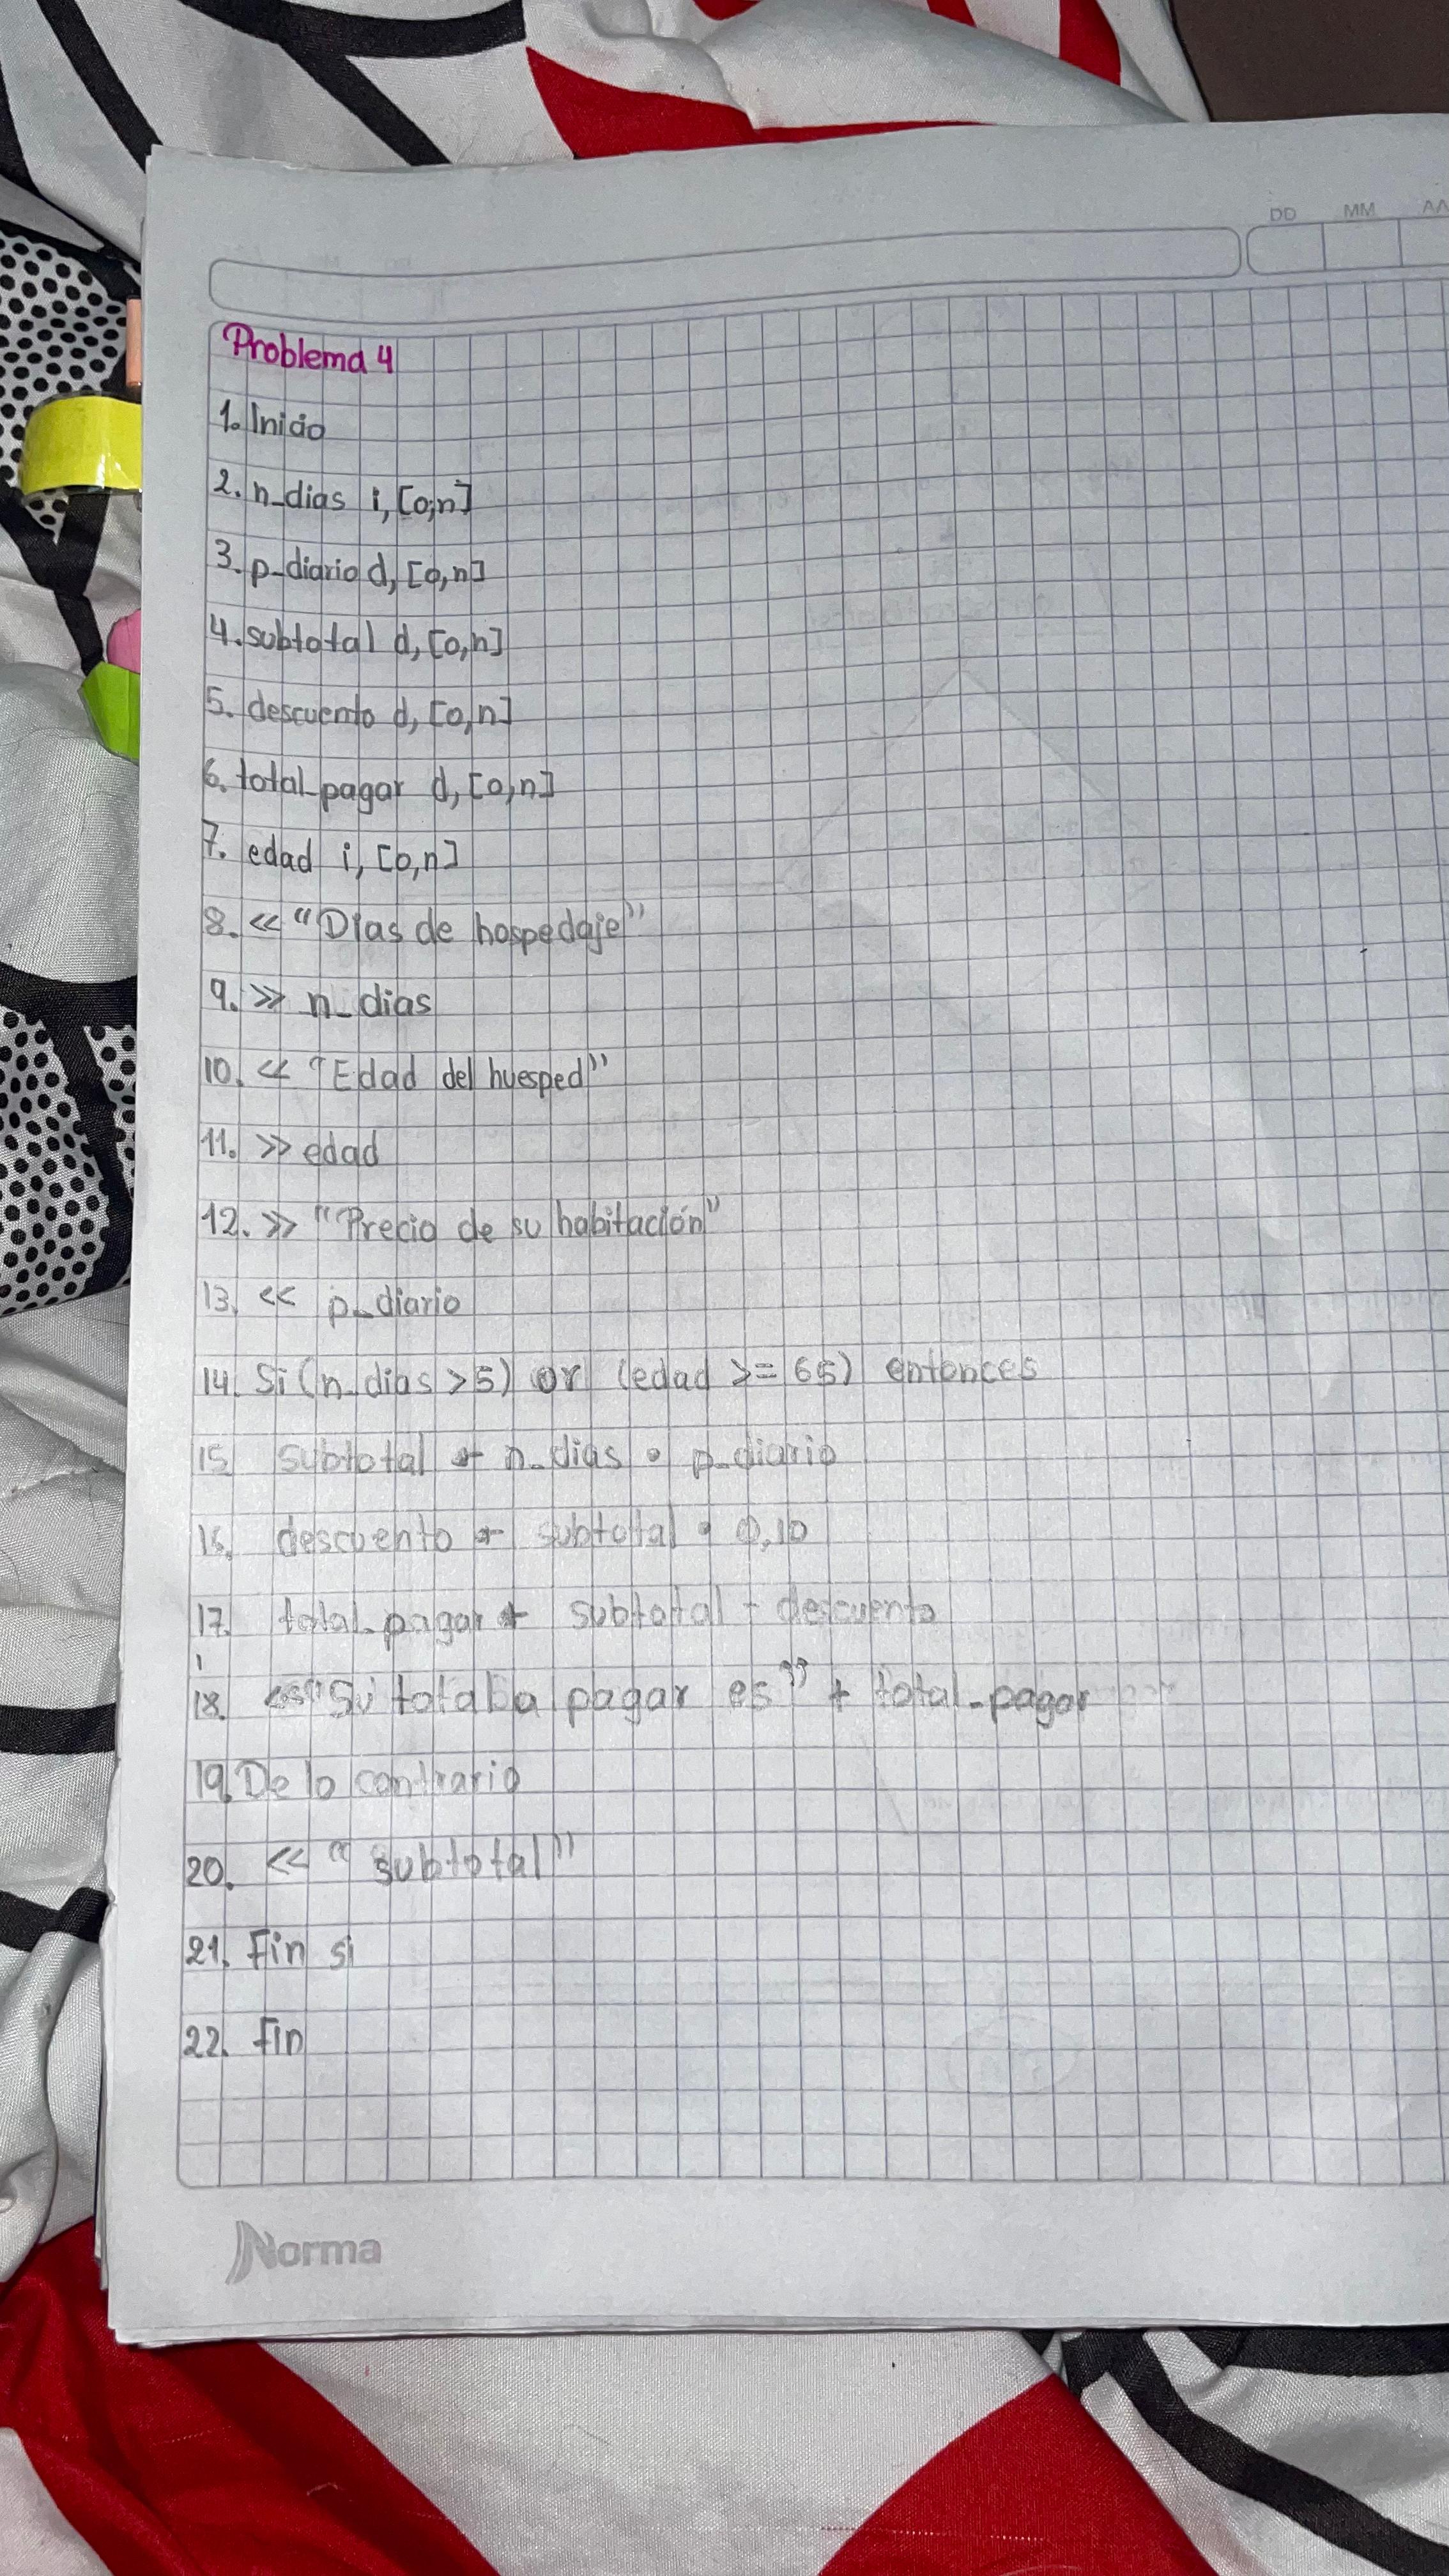 DD MM AA
Problema 4
1. Inicio
2. n_dias i, [0,n]
3. p_diario d, [0,n]
4. subtotal d, [0,n]
5. descuento d, [0,n]
6. total_pagar d, [0,n]
7. edad i, [0,n]
8. << "Dias de hospedaje"
9. >> n_dias
10. << "Edad del huesped"
11. >> edad
12. >> "Precio de su habitación"
13. << p_diario
14. Si (n_dias >5) or (edad >= 65) entonces
15. subtotal ← n_dias • p_diario
16. descuento ← subtotal • 0,10
17. total_pagar ← subtotal - descuento
18. << "Su total a pagar es" + total_pagar
19. De lo contrario
20. << "subtotal"
21. Fin si
22. Fin
Norma